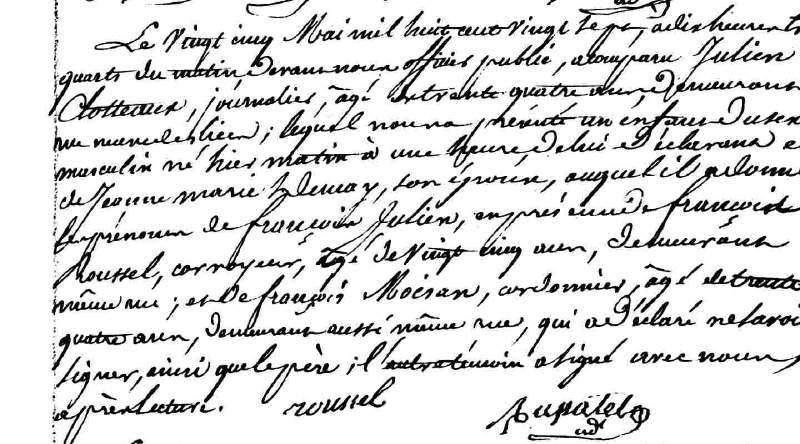 Le vingt cinq Mai mil huit cent vingt sept, à dix heures trois
quarts du matin devant nous officier public, a comparu Julien
Clotteaux, journalier, âgé de trente quatre ans, demeurant
rue ; lequel nous a présenté un enfant du sexe
masculin né hier matin à une heure, de lui déclarant et
de Jeanne marie, son épouse, auquel il a donné
les prénoms de françois Julien, en présence de françois
Roussel, corroyeur, âgé de vingt cinq ans, demeurant
même rue ; et de françois Moisan, cordonnier, âgé de trente
quatre ans, demeurant aussi même rue, qui a déclaré ne savoir
signer, ainsi que le père ; l'autre témoin a signé avec nous,
après lecture. roussel
adt